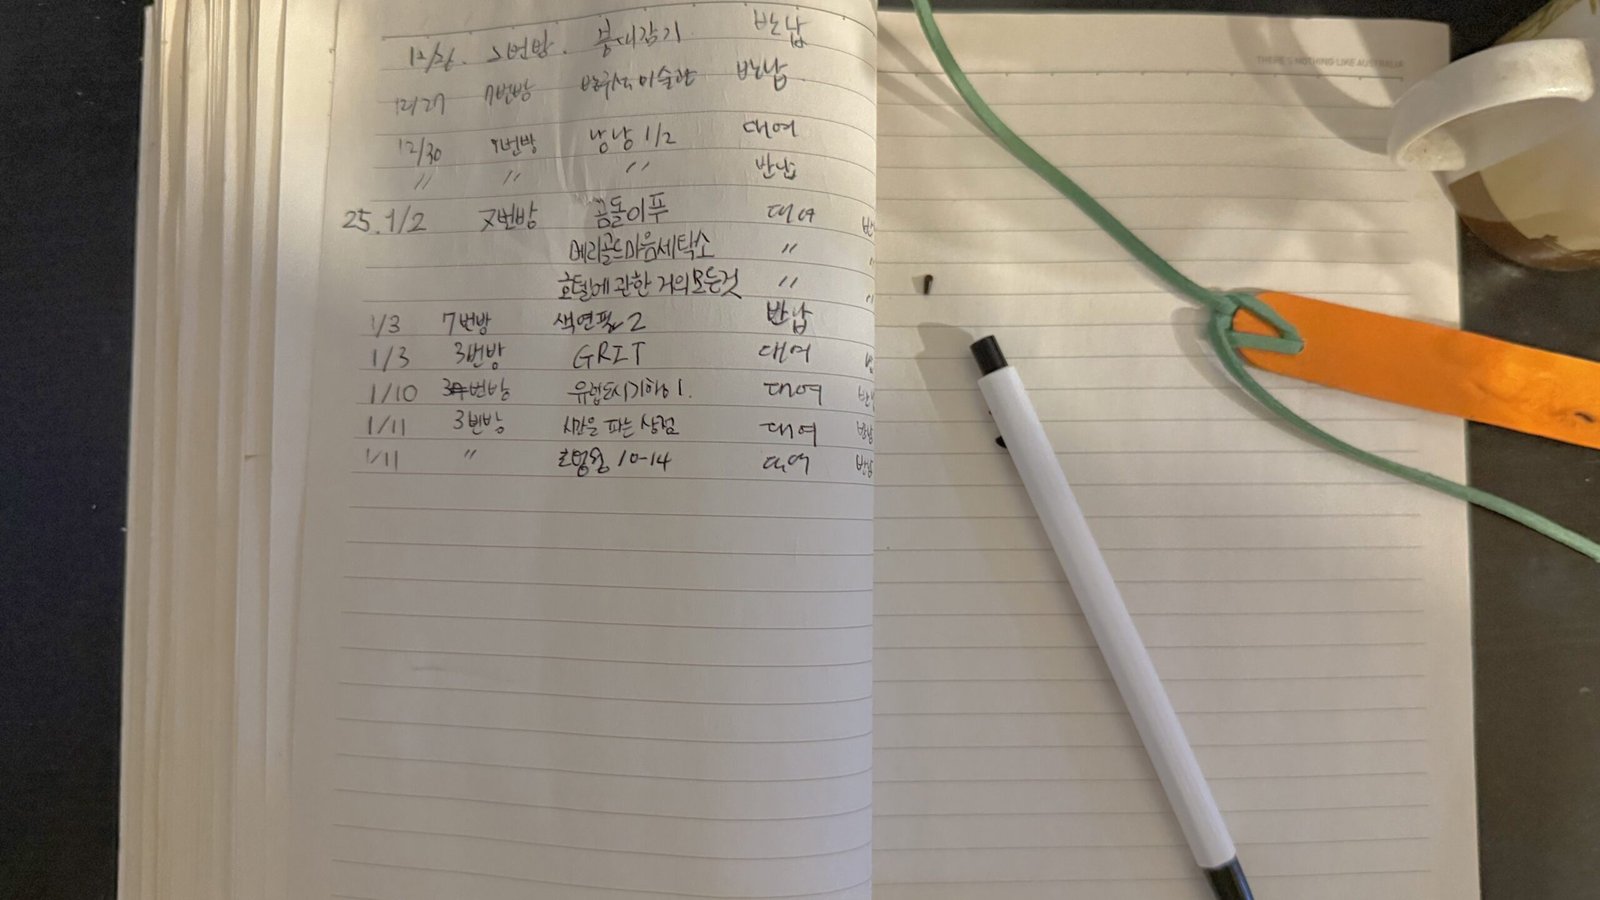 12/26. 5번방. 붕대감기 반납
12/27 7번방 미술관 반납
12/30 7번방 냥냥 1/2 대여
〃 〃 〃 반납
25. 1/2 7번방 곰돌이푸 대여
메리골드마음세탁소 〃 〃
호텔에 관한 거의모든것 〃 〃
1/3 7번방 색연필 2 반납
1/3 3번방 GRIT 대여
1/10 3번방 유럽도시기행 1. 대여
1/11 3번방 시간을 파는 상점 대여 반납
1/11 〃 10-14 대여 반납
THERE'S NOTHING LIKE AUSTRALIA